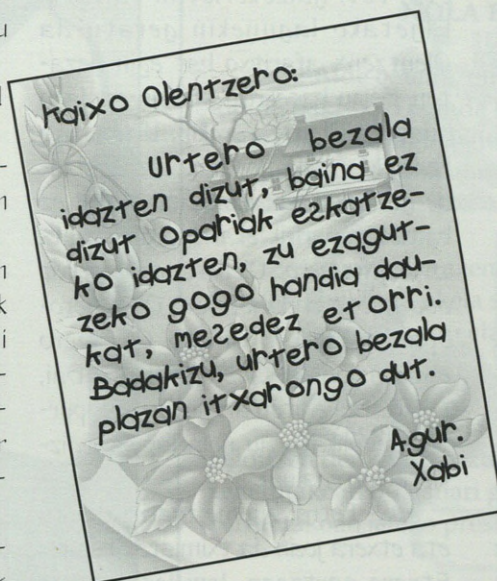 Kaixo Olentzero:
Urtero bezala
idazten dizut, baina ez
dizut opariak eskatze-
ko idazten, zu ezagut-
zeko gogo handia dau-
kat, mesedez etorri.
Badakizu, urtero bezala
plazan itxarongo dut.
Agur.
Xabi